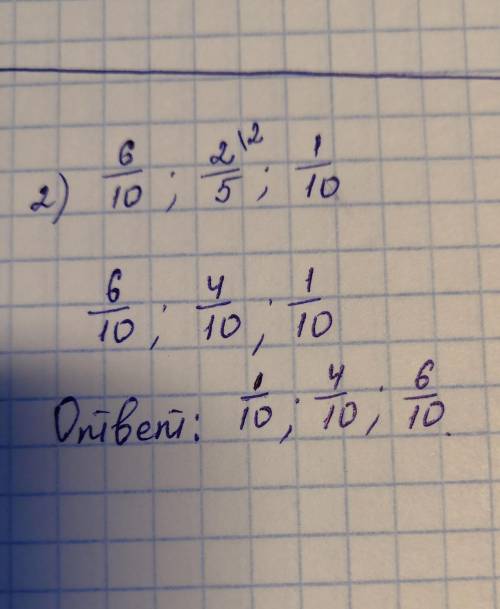 2) 6/10 ; 2\2/5 ; 1/10
6/10 ; 4/10 ; 1/10
Ответ: 1/10 ; 4/10 ; 6/10.